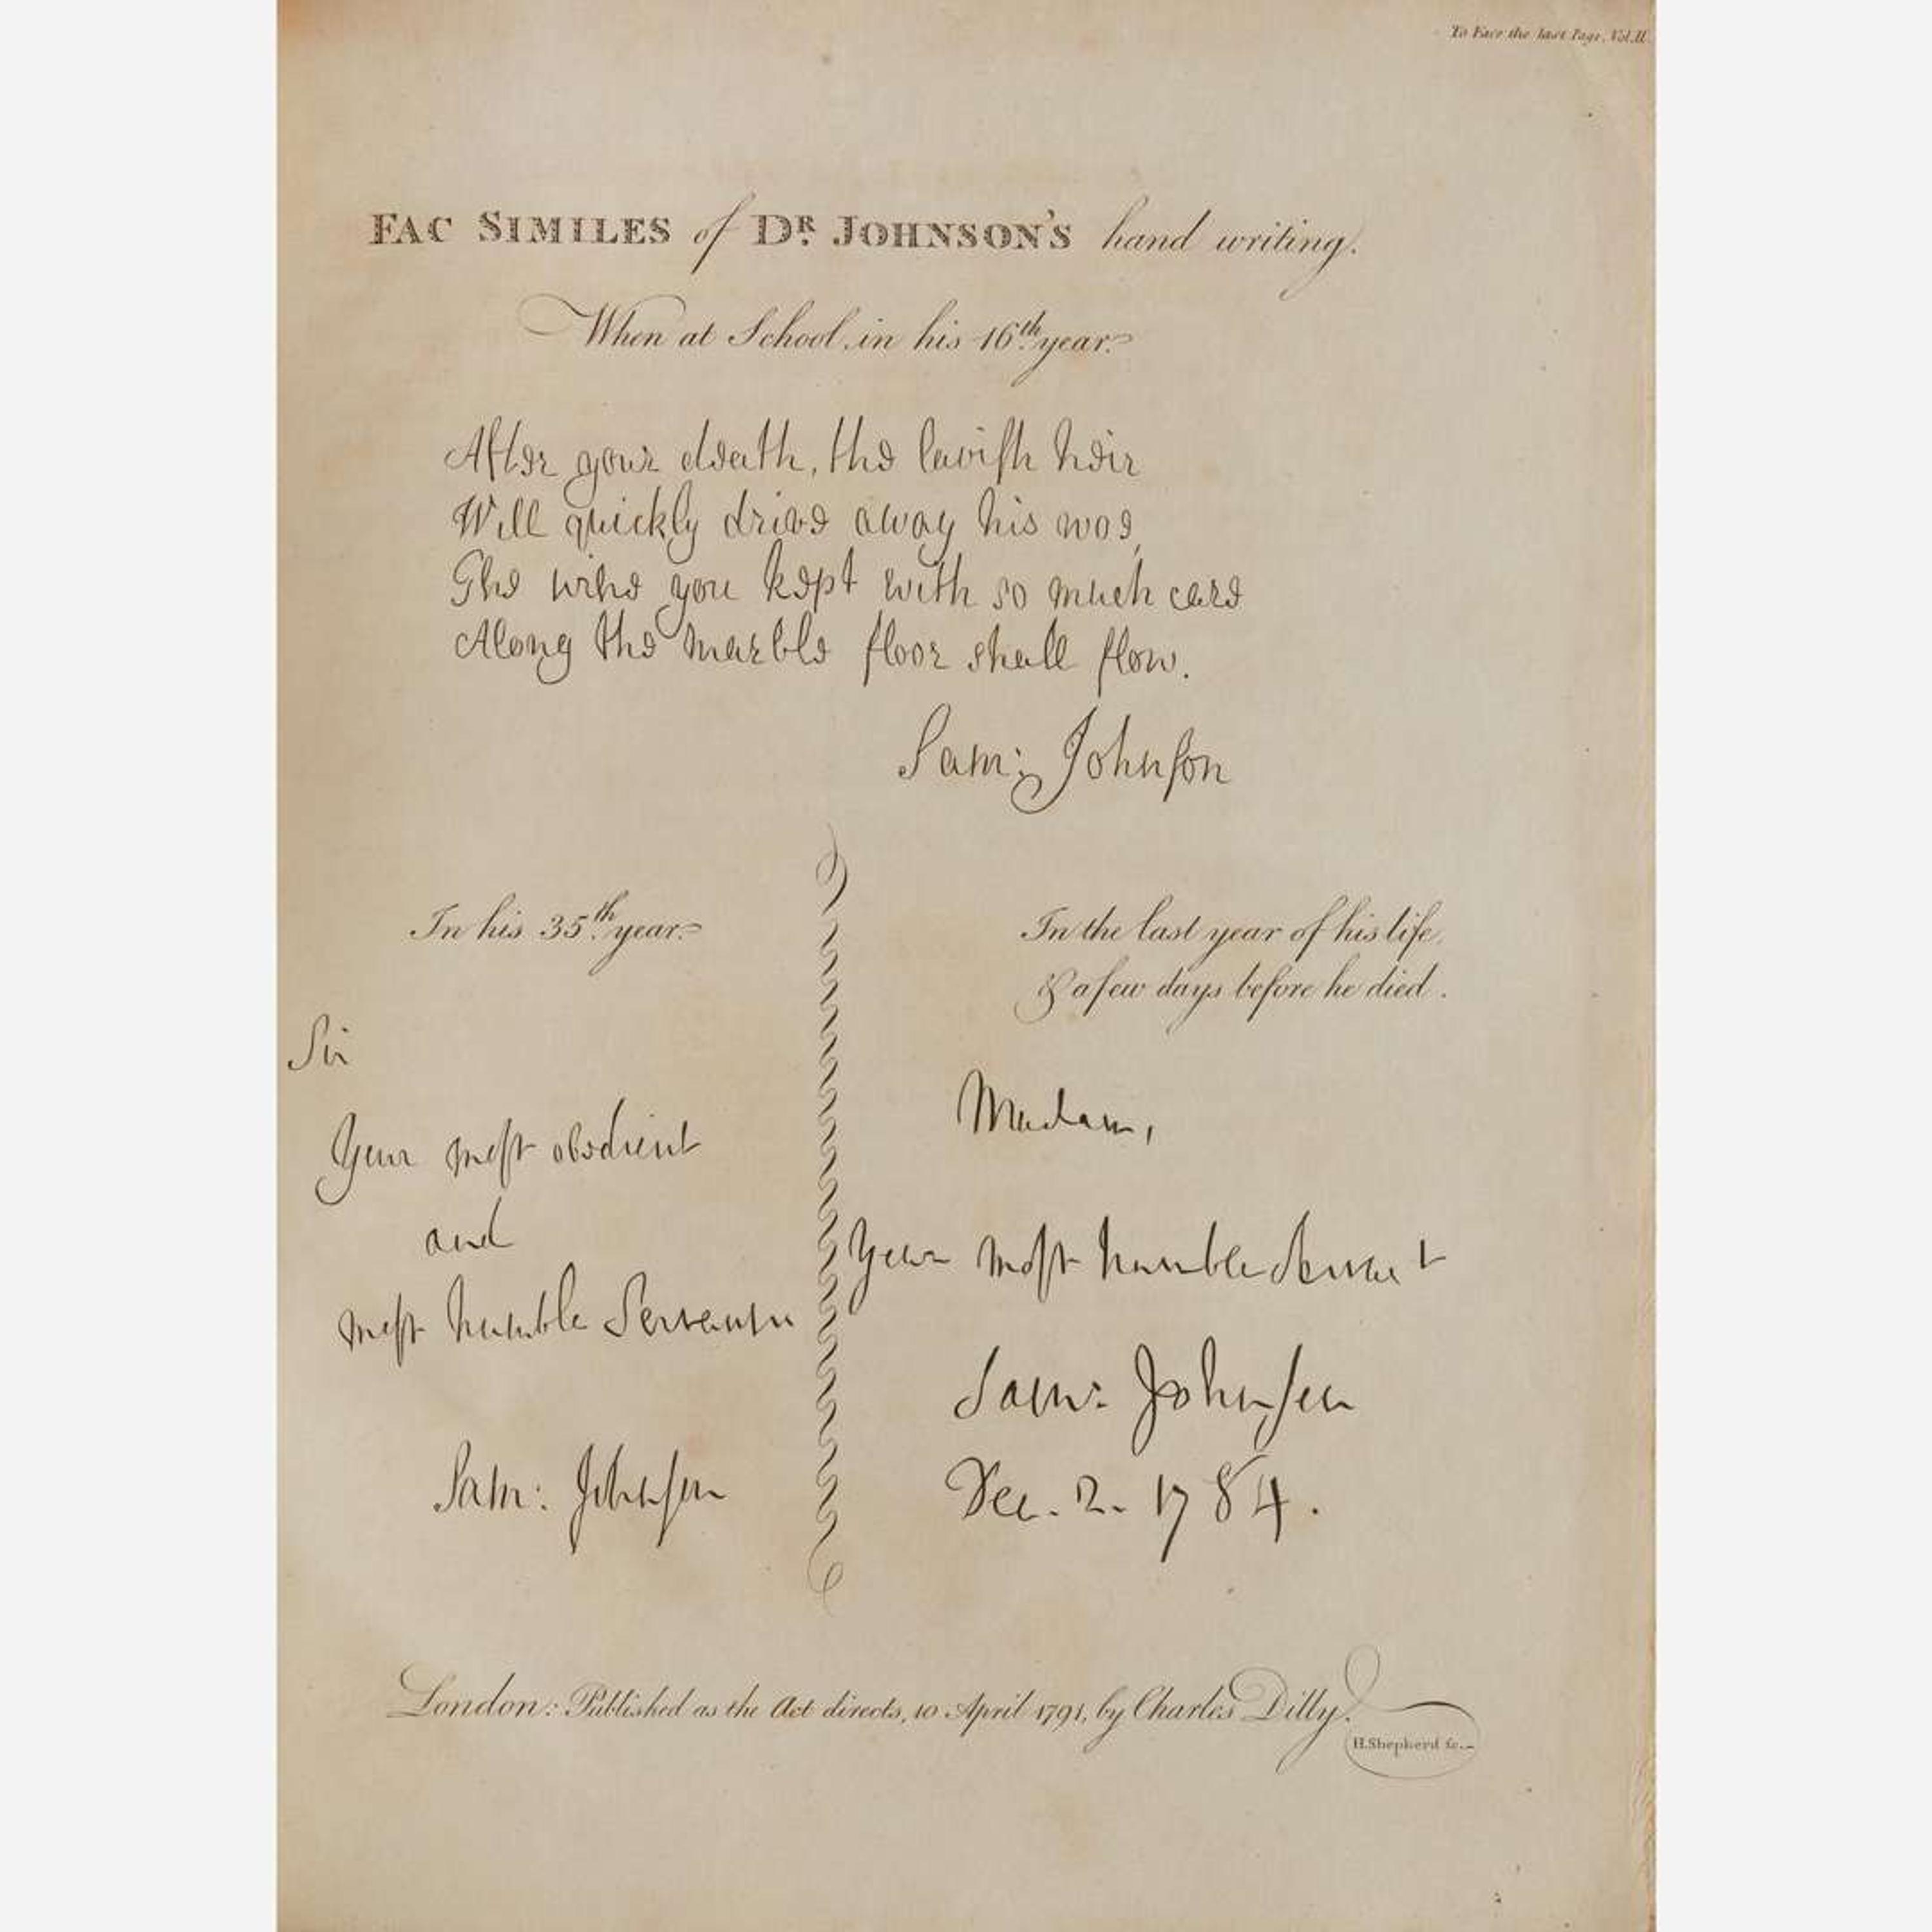 To Face the last Page, Vol. II.
FAC SIMILES of DR. JOHNSON'S hand writing.
When at School in his 16th. year.
After your death, the lavish heir
Will quickly drive away his woe,
The wine you kept with so much care
Along the marble floor shall flow.
Sam: Johnson
In his 35th. year.
Sir
Your most obedient
and
most humble Servant
Sam: Johnson
In the last year of his life,
& a few days before he died.
Madam,
Your most humble Servant
Sam: Johnson
Dec. 2. 1784.
London: Published as the Act directs, 10 April 1791, by Charles Dilly.
H. Shepherd sc.